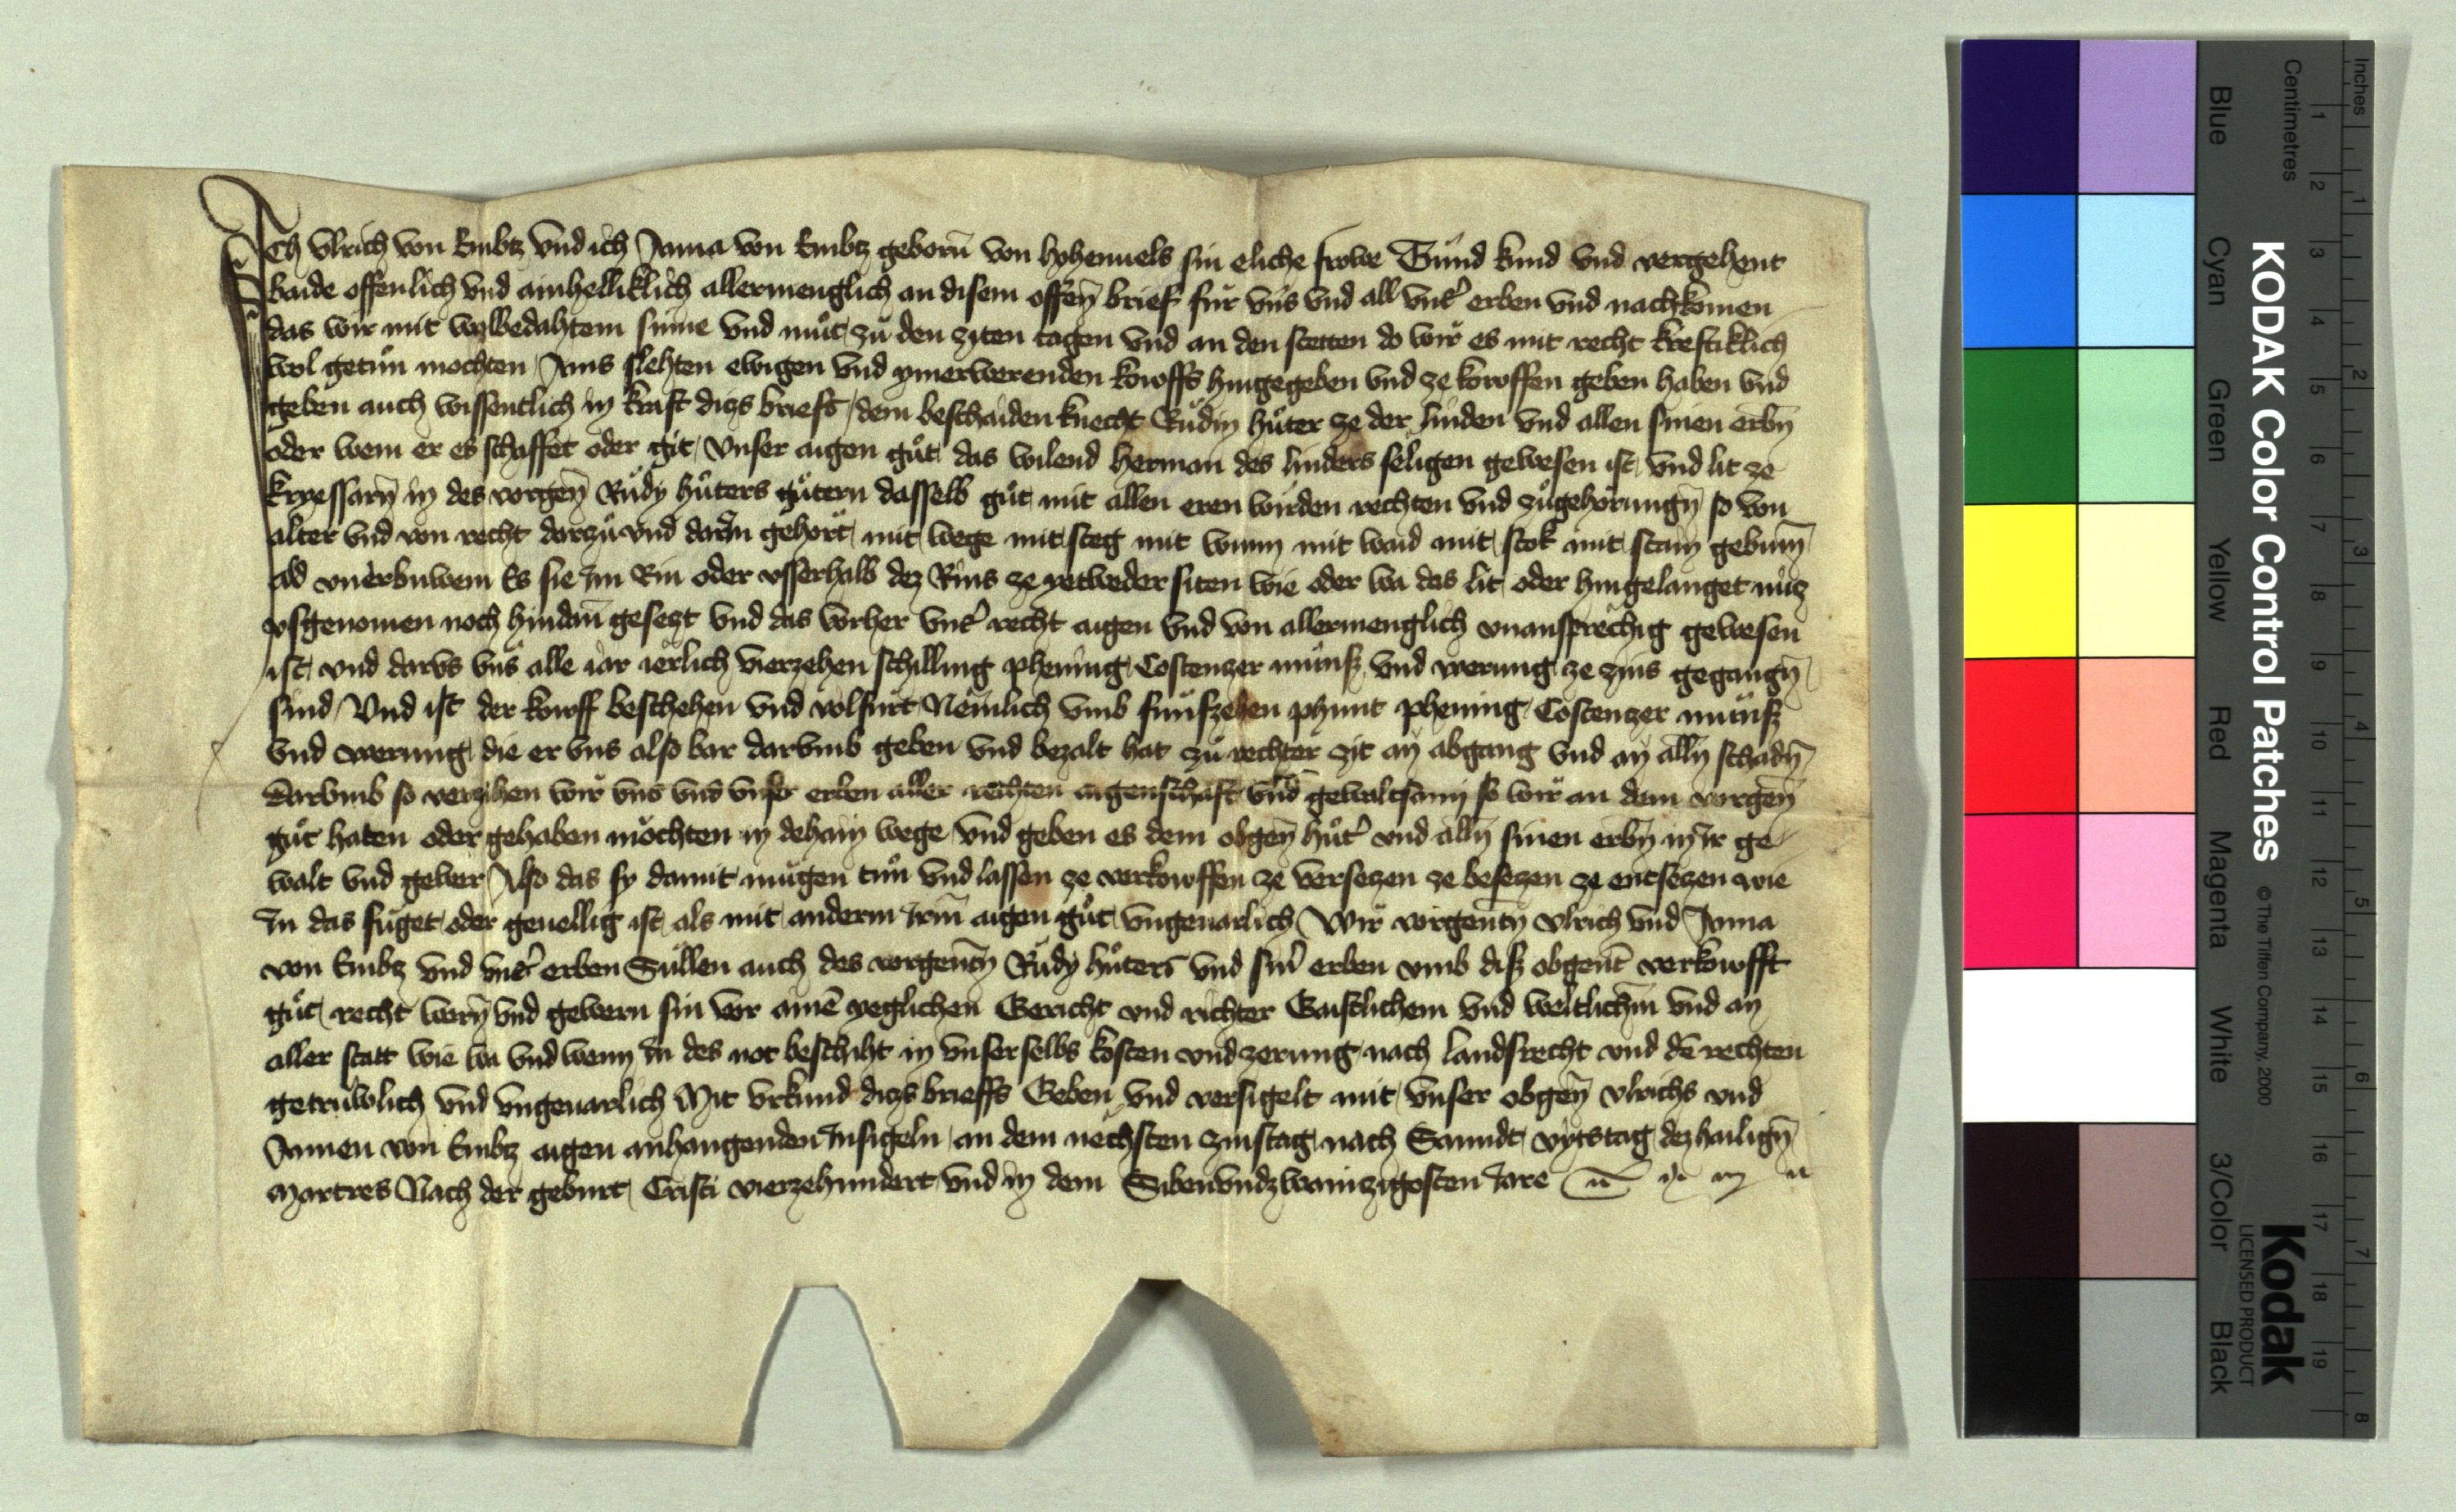 Ich Vlrich von Embtz vnd ich Anna von Embtz geborn̄ von hohenuels sin eliche frowe Tůnd kund vnd vergehent
baide offenlich vnd ainhelliklich allermenglich an disem offen̄ brief fúr vns vnd all vnsˀ erben vnd nachkomen
das wir mit wolbedahtem sinne vnd můt zů den ziten tagen vnd an den stetten do wir es mit recht kreftiklich
wol getůn mochten Ains slehten ewigen vnd ymerwerenden kowffs hingegeben vnd ze kowffen geben haben vnd
geben auch wissentlich in kraft ditzs briefs dem beschaiden knecht Růdin Hůter ze der linden vnd allen sinen erbn̄
oder wem er es schaffet oder git vnser aigen gůt das wilend Herman des linders seligen gewesen ist vnd lit ze
kryessarn̄ in des vorgen̄ Růdy Hůters gůtern dasselb gůt mit allen eren wirden rechten vnd zůgehorungn̄ so von
alter vnd von recht darzů vnd darin gehort mit wege mit steg mit wunn mit waid mit stok mit stain gebuwn̄
ald vnerbuwem Es sie im Rin oder vsserhalb dez Rins ze yetweder siten wie oder wa das lit oder hingelanget nútz
vsgenomen noch hindan̄ gesetzt vnd das vorher vnsˀ recht aigen vnd von allermenglich vnansprechig gewesen
ist vnd darvs vns alle iar ierlich vierzehen schilling phening Costentzer múnsz vnd werung ze zins gegangn̄
sind Vnd ist der kowff beschehen vnd volfůrt Nemlich vmb fúnfzehen phunt phening Costentzer múnsz
vnd werung die er vns also bar darvmb geben vnd bezalt hat zů rechter zit an abgang vnd an alln̄ schadn̄
darvmb so verzihen wir vns vnd vnser erben aller rechten aigenschaft vnd gewaltsami so wir an dem vorgen̄
gůt haten oder gehaben mochten in dehain wege vnd geben es dem obgen̄ Hůtˀ vnd alln̄ sinen erbn̄ in ir ge
walt vnd gewer Also das sy damit mugen tůn vnd lassen ze verkowffen ze versetzen ze besetzen ze entsetzen wie
In das fůget oder geuellig ist als mit anderm irm̄ aigen gůt vngeuarlich Wir vorgenten̄ Vlrich vnd Anna
von Embtz vnd vnsˀ erben Súllen auch des vorgenten̄ Růdy Hůters vnd sinˀ erben vmb disz obgent̄ verkowfft
gůt recht wern̄ vnd gewern sin vor ainē yeglichen Gericht vnd richter Gaistlichem vnd weltlichem̄ vnd an
aller statt wie wa vnd wenn In des not beschiht in vnser selbs kosten vnd zerung nach landsrecht vnd dē rechten
getrúwlich vnd vngeuarlich Mit vrkund ditzs brieffs Geben vnd versigelt mit vnser obgen̄ Vlrichs vnd
Annen von Embtz aigen anhangenden Insigeln an dem nechsten zinstag nach Sanndt vytstag dez hailign̄
Martres Nach der geburt Cristi vierzehundert vnd in dem Sibenvndzwaintzigosten Iare
KODAK Color Control Patches
© The Tiffen Company, 2000
Kodak
LICENSED PRODUCT
Inches
Centimetres
1 2 3 4 5 6 7 8 9 10 11 12 13 14 15 16 17 18 19
1 2 3 4 5 6 7 8
Blue Cyan Green Yellow Red Magenta White 3/Color Black